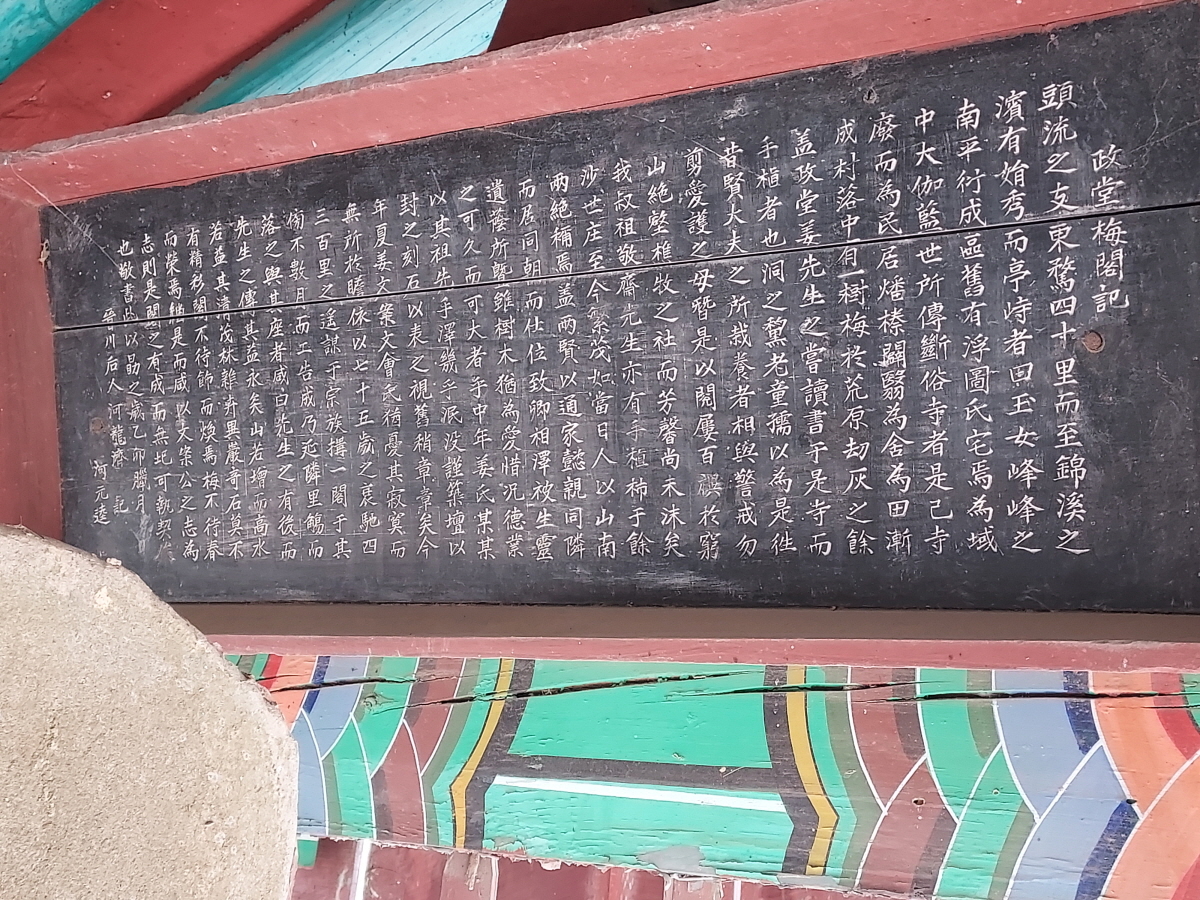 政堂梅閣記
頭流之支東騖四十里而至錦溪之
濱有娟秀而亭峙者曰玉女峰峰之
南平衍成區舊有浮圖氏宅焉為域
中大伽藍世所傳斷俗寺者是已寺
廢而為民居燔榛闢翳為舍為田漸
成村落中有一樹梅於荒原刧灰之餘
盖政堂姜先生之嘗讀書于是寺而
手植者也洞之黧老童孺以為是徃
昔賢大夫之所栽養者相與警戒勿
剪愛護之毋替是以閱屢百禩於窮
山絶壑樵牧之社而芳馨尚未沬矣
我叔祖敬齋先生亦有手植柿于餘
沙世庄至今繁茂如當日人以山南
兩絶稱焉盖兩賢以通家懿親同隣
而居同朝而仕位致卿相澤被生靈
遺蔭所曁雖樹木猶為愛惜况德業
之可久而可大者乎中年姜氏某某
以其祖先手澤幾乎泯没謹築壇以
封之刻石以表之視舊稍章章矣今
年夏姜文案文會氏猶憂其寂寞而
無所於瞻依以七十五歲之衰馳四
三百里之遥謀于宗族搆一閣于其
傍不數月而工告成乃延隣里觴而
落之與其座者咸白先生之有後而
先生之傳其益永矣山若增而高水
若益其清茂林雜卉里巖奇石莫不
有精彩閣不待飾而煥焉梅不待春
而榮焉繼是而咸以文案公之志為
志則是閣之有成而無圮可執契
也敬書此以勗之歲乙卯臘月
晉川后人河龍濟 記
河元逵